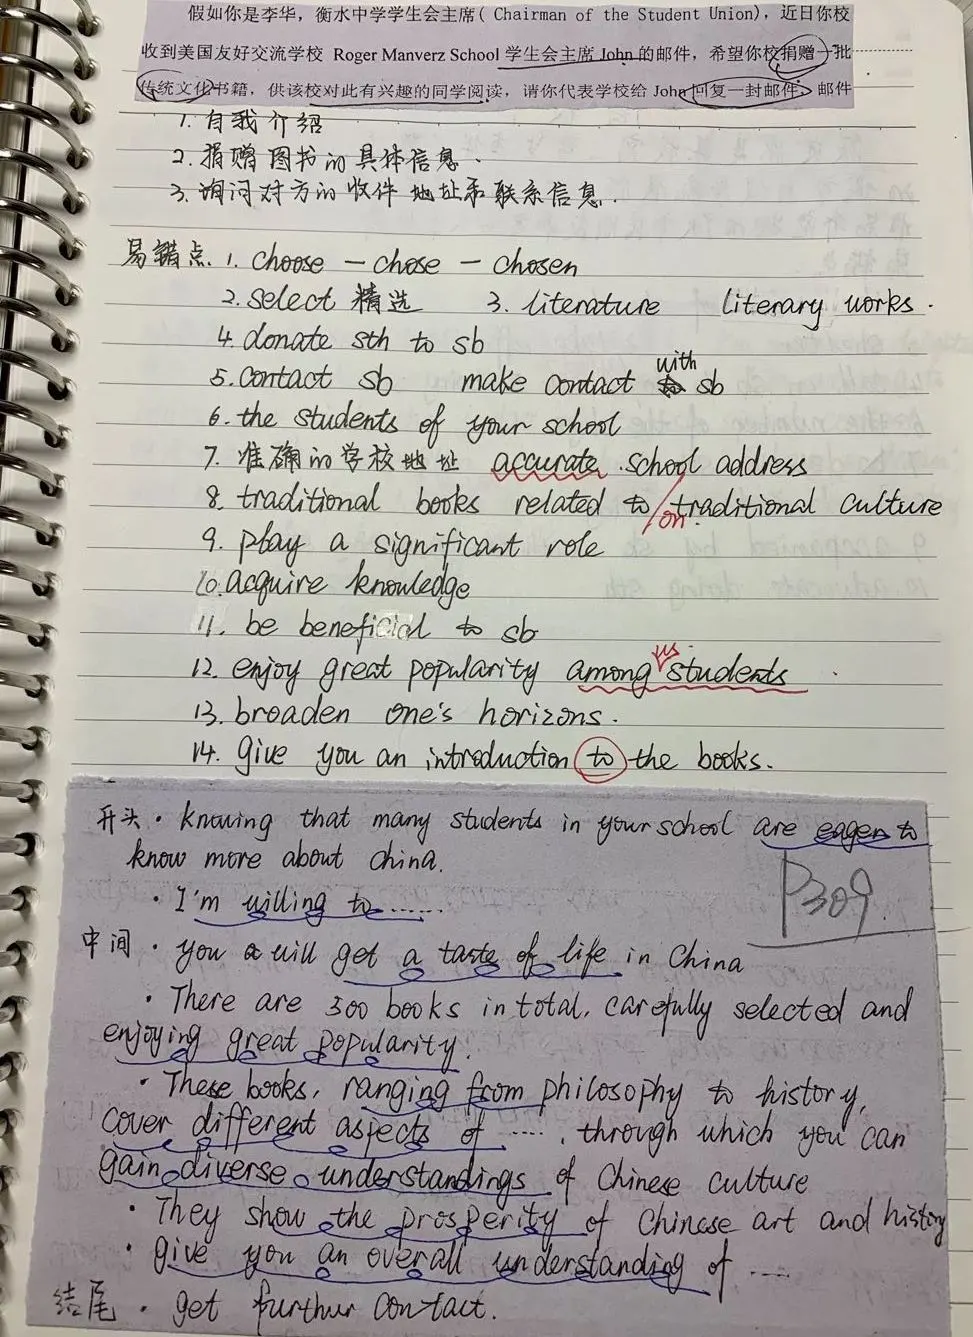 假如你是李华，衡水中学学生会主席( Chairman of the Student Union)，近日你校
收到美国友好交流学校 Roger Manverz School 学生会主席 John 的邮件，希望你校捐赠一批
传统文化书籍，供该校对此有兴趣的同学阅读，请你代表学校给 John 回复一封邮件，邮件
1. 自我介绍
2. 捐赠图书的具体信息.
3. 询问对方的收件地址和联系信息.
易错点 1. choose - chose - chosen
2. select 精选 3. literature literary works.
4. donate sth to sb
5. contact sb make contact with sb
6. the students of your school
7. 准确的学校地址 accurate school address
8. traditional books related to/on traditional culture
9. play a significant role
10. acquire knowledge
11. be beneficial to sb
12. enjoy great popularity among us students
13. broaden one's horizons.
14. give you an introduction to the books.
开头 · knowing that many students in your school are eager to
know more about china.
· I'm willing to ......
P309
中间 · you will get a taste of life in China
· There are 300 books in total, carefully selected and
enjoying great popularity.
· These books, ranging from philosophy to history,
cover different aspects of ...., through which you can
gain diverse understandings of Chinese culture
· They show the prosperity of Chinese art and history
· give you an overall understanding of ....
结尾 · get furthur contact.